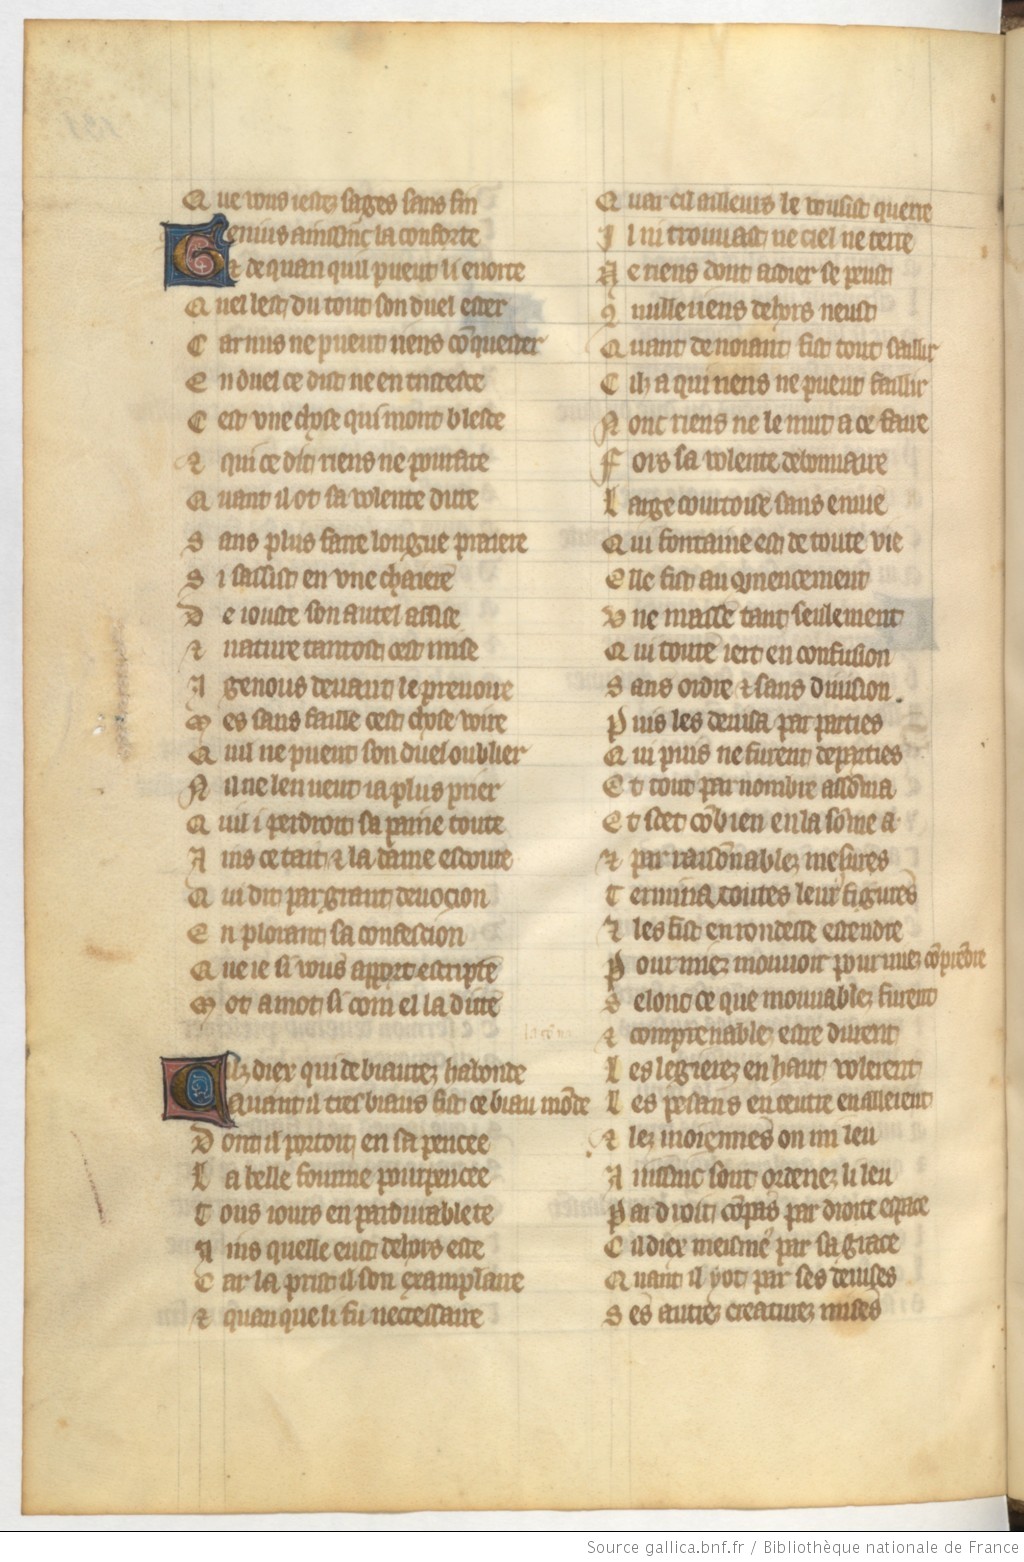 Que vous iestez sages sans fin
Genius ainssinc la conforte
Et de quan quil pueut li enorte
Quel lest du tout son duel ester
Car nus ne pueut riens cõquester
En duel ce dist ne en tristece
Cest vne chose qui mont blesce
⁊ qui ce dit riens ne pourfite
Quant il ot sa volente dite
Sans plus faire longue praiere
Si sassist en vne chaiere
De iouste son autel assise
⁊ nature tantost cest mise
A genous deuant le prouoire
Mes sans faille cest chose voire
Quil ne pueut son duel oublier
Nil ne len ueut ia plus prier
Quil i perdroit sa paine toute
Ains ce tait ⁊ la dame escoute
Qui dit par grant deuocion
En plorant sa confession
Que ie si vous apport escripte
Mot a mot si com el la dite
Cilz diex qui de biautez habonde
Quant il tres biaus fist ce biau mõde
Dont il portoit en sa pencee
La belle fourme pourpencee
Tous iours en pardurablete
Ains quelle eust dehors este
Car la prist il son examplaire
⁊ quanque li fu neccessaire
Quar cil ailleurs le vousist querre
Il ni trouuast ne ciel ne terre
Ne riens dont aidier se peust
Q nulle riens dehors neust
Quant de noiant fist tout saillir
Cilz a qui riens ne pueut faillir
Nonc riens ne le mut a ce faire
Fors sa volente debonnaire
Large courtoise sans enuie
Qui fontaine est de toute vie
Elle fist au ꝯmencement
Vne masse tant seulement
Qui toute iert en confusion
Sans ordre ⁊ sans diuision.
Puis les deuisa par parties
Qui puis ne furent departies
Et tout par nombre assõma
Et scet cõbien en la sõme a
⁊ par raisõnablez mesures
Termina toutes leur figures
⁊ les fist en rondesse estendre
Pour miex mouuoir pour miex cõprẽdre
Selonc ce que mouuablez furent
⁊ comprenablez estre durent
Les legierez en haut volerent
Les pesans en centre en allerent
⁊ lez moiennes on mi leu
Ainssinc sont ordenez li leu
Par droit cõpas par droite espace
Cil diex meisme par sa grace
Quant il y ot par ses deuises
Ses autrez creaturez mises